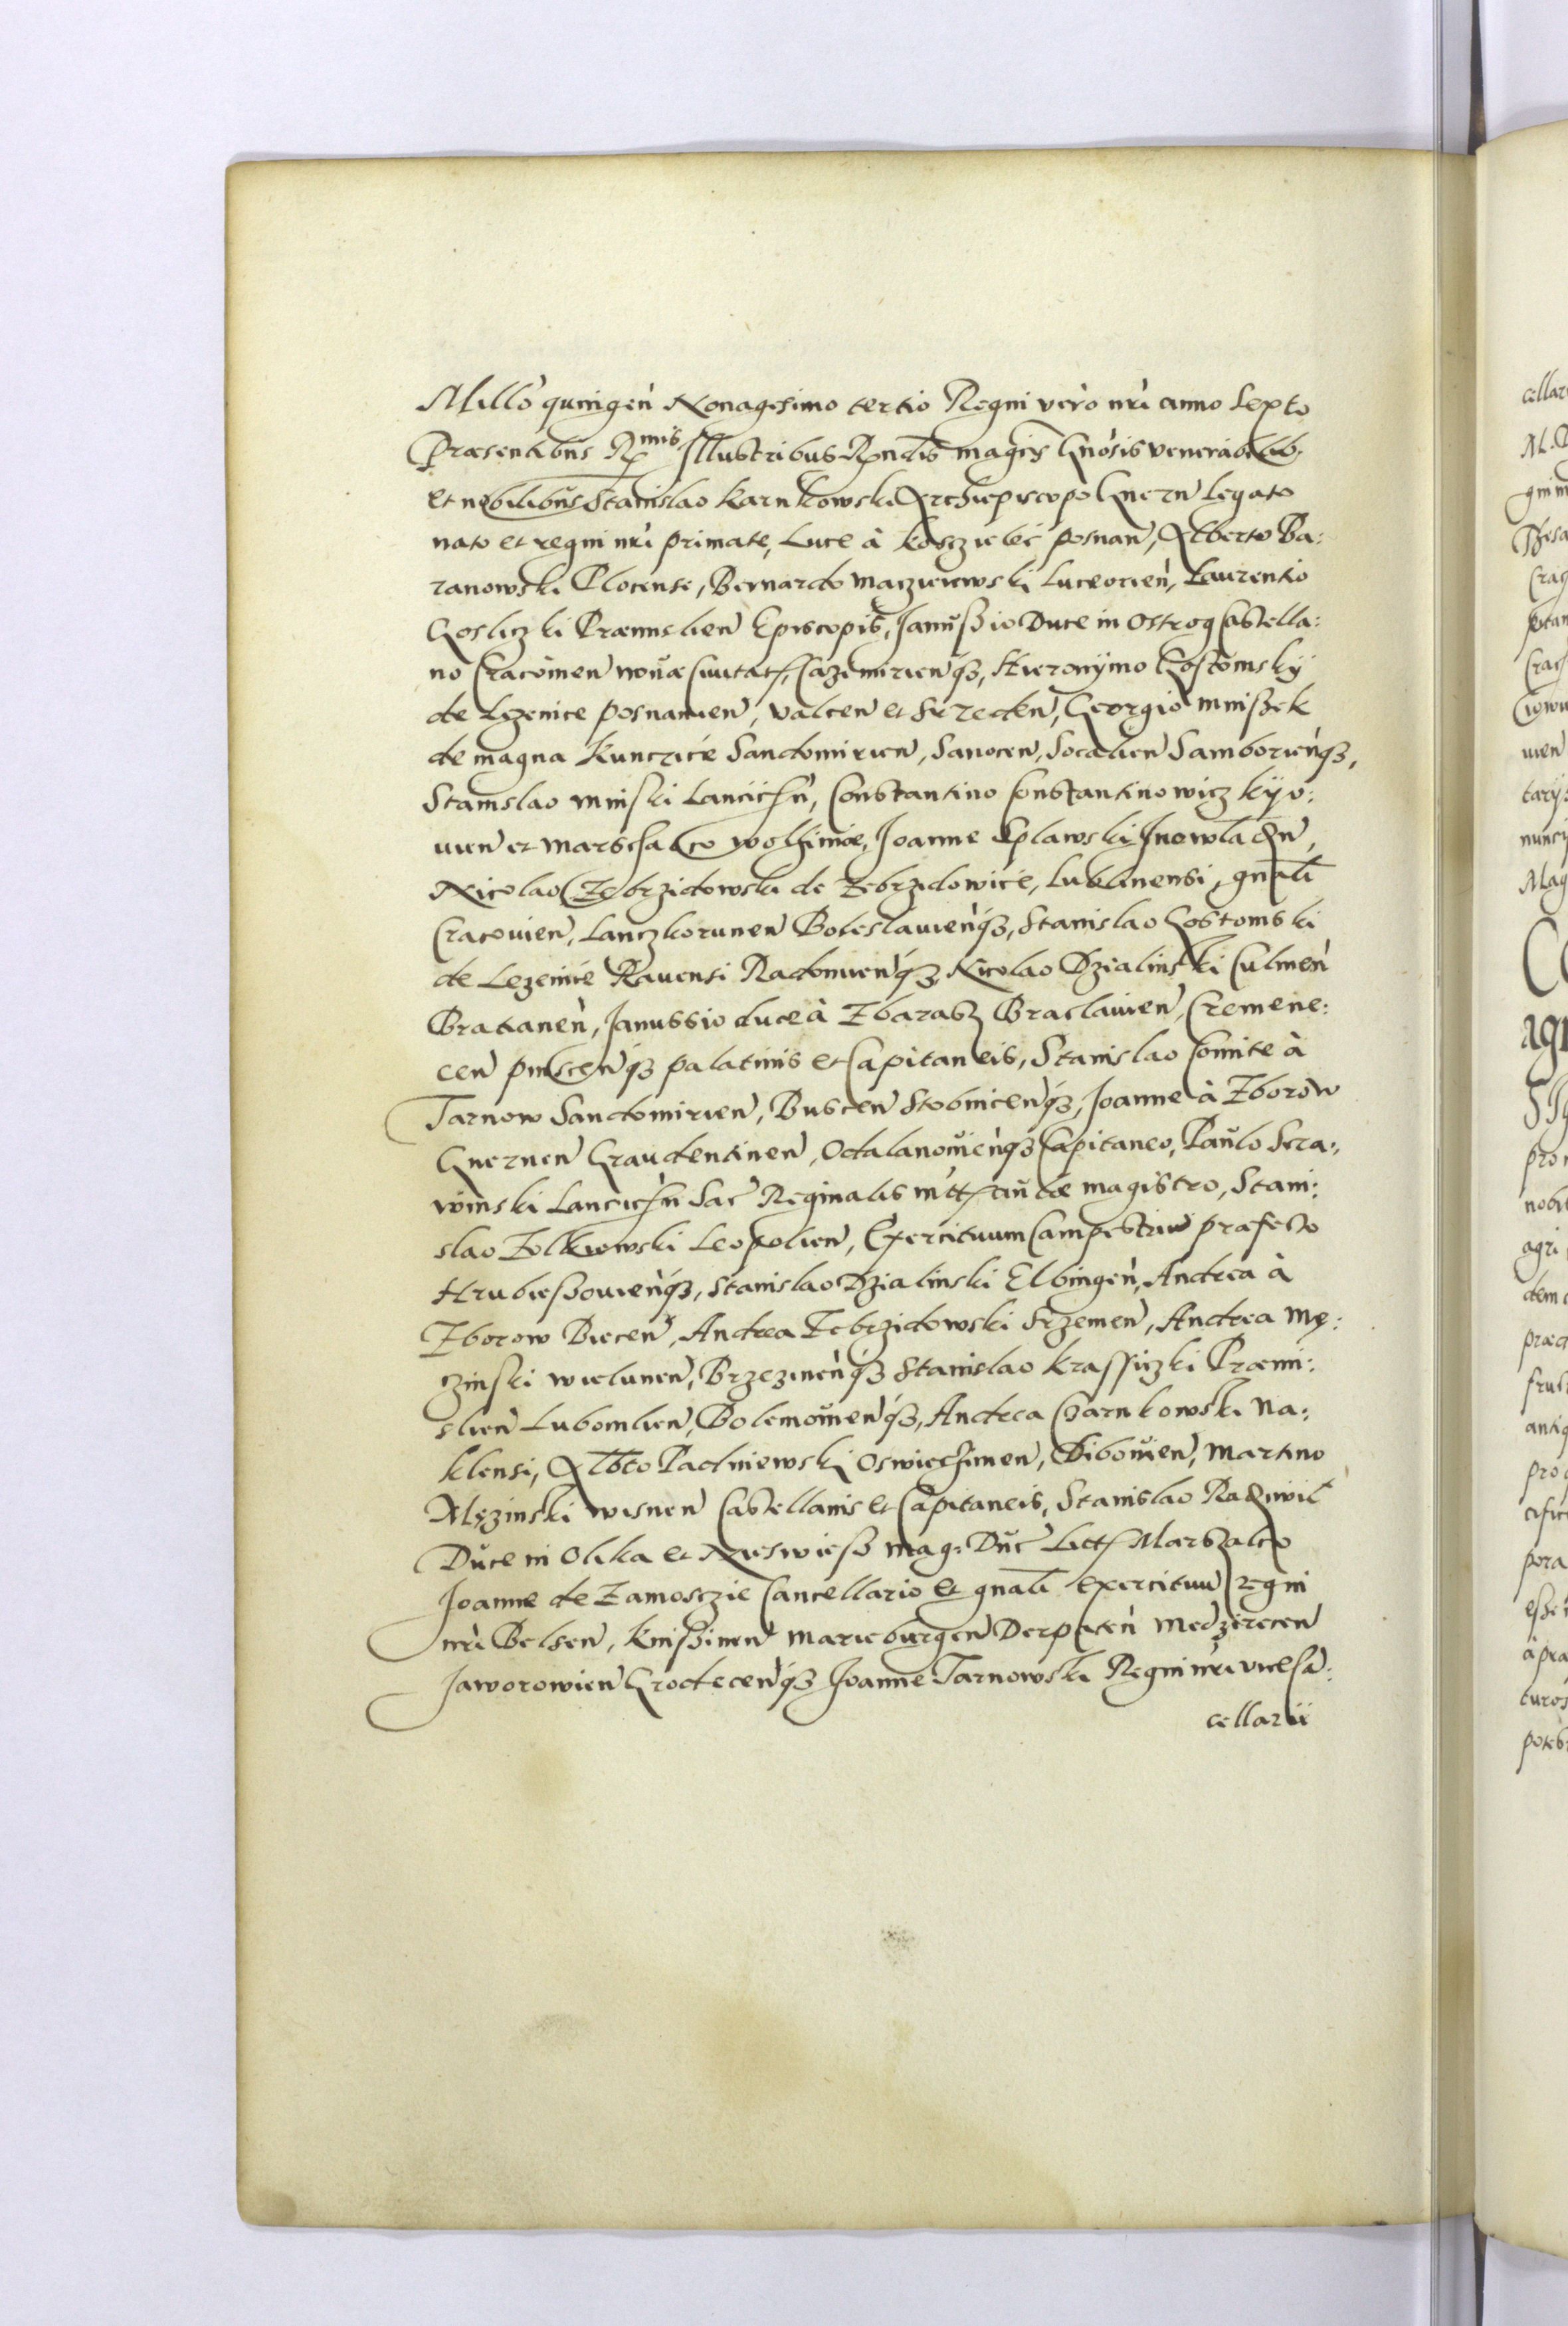 Millõ quingeñ Nonagesimo tertio Regni vero nrĩ anno Sexto
Præsentibus Rmis Illustribus Rṽndis magcis Gnosis venerabilib.
et nobilibus Stanislao Karnkowski Archiepiscopo Gnezn Legato
nato et regni nrĩ primate, Luca à Kosczielec posnan, Alberto Ba:
ranowski Plocense, Bernardo maczieiewski Luceorień, Laurentio
Gosliczki Præmislien Episcopis, Janussio Duce in Ostrog Castella:
no Cracouien nouæ Ciuitatis, Cazimirienq3, Hieronymo Gostomsky
de Lezenice posnanien, valcen et Srzeden, Georgio mnissek
de magna Kunczice Sandomirien, Sanocen, Socalien Samborienq3,
Stanislao minski Lancicień, Constantino Constantinowicz Kijo:
uien et Marschalco wolhiniæ, Joanne Splawski Inowladn,
Nicolao Zebrzidowski de Zebrzidowice, Lublinensi, gnali
Cracouien, Lanczkorunen Boleslauienq3, Stanislao Gostomski
de Lezenice Rauensi Radomienq3 Nicolao Dzialinski Culmeń
Bratianeń, Janussio duce à Zbarasz Braclauien, Cremene:
cen pinscenq3 palatinis et Capitaneis, Stanislao Comite à
Tarnow Sandomirien, Buscen Stobnicenq3, Joanne à Zborow
Gneznen Graudentinen, Odalanouienq3 Capitaneo, Paulo Scra:
winski Lancicień Sac Reginalis mttis curiæ magistro, Stani:
slao Zolkiewski Leopolien, Exercituum Campestriu præfecto
Hrubiessouienq3, Stanislao Dzialinski Elbingeń, Andrea à
Zborow Biecen, Andrea Zebrzidowski Srzemen, Andrea Mę:
czinski wielunen, Brzezinenq3 Stanislao Krassiczki Præmi:
slien Lubomlien, Bolemouienq3, Andrea Czarnkowski Na:
klensi, Albto Padniewski Oswieczimen, Dibouien, Martino
Męzinski wisnen Castellanis et Capitaneis, Stanislao Radziwil
Duce in Olika et Nieswiess mag: Duc Litt Marszalco
Joanne de Zamosczie Cancellario et gnali Exercituu regni
nrĩ Belsen, Knissinen Marieburgen Derpaten Medzirecen
Jaworowien Grodecenq3 Joanne Tarnowski Regni nrĩ vicesa:
cellarii